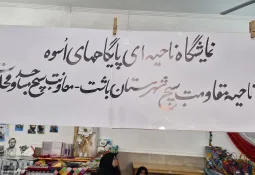 نمایشگاه ناحیه ای پایگاههای اسوه
ناحیه مقاومت بسیج شهرستان باشت - معاونت بسیج مساجد و محلات